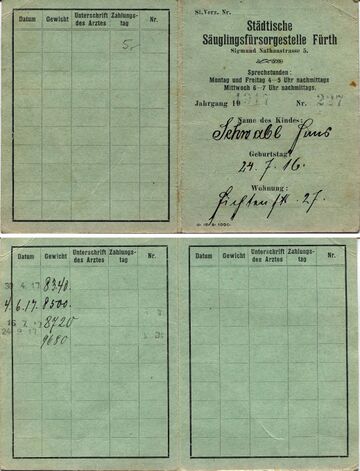 Datum
Gewicht
Unterschrift des Arztes
Zahlungstag
Nr.
5.-
St. Verz. Nr.
Städtische
Säuglingsfürsorgestelle Fürth
Sigmund Nathanstrasse 5.
Sprechstunden:
Montag und Freitag 4–5 Uhr nachmittags
Mittwoch 6–7 Uhr nachmittags.
Jahrgang 1917 Nr. 227
Name des Kindes:
Schwabl Hans
Geburtstag:
24. 7. 16.
Wohnung:
Fichtenstr. 27.
Datum
Gewicht
Unterschrift des Arztes
Zahlungstag
Nr.
30. 4. 17 8340.
4. 6. 17. 8500.
8720
24. 9. 17 9680
Datum
Gewicht
Unterschrift des Arztes
Zahlungstag
Nr.